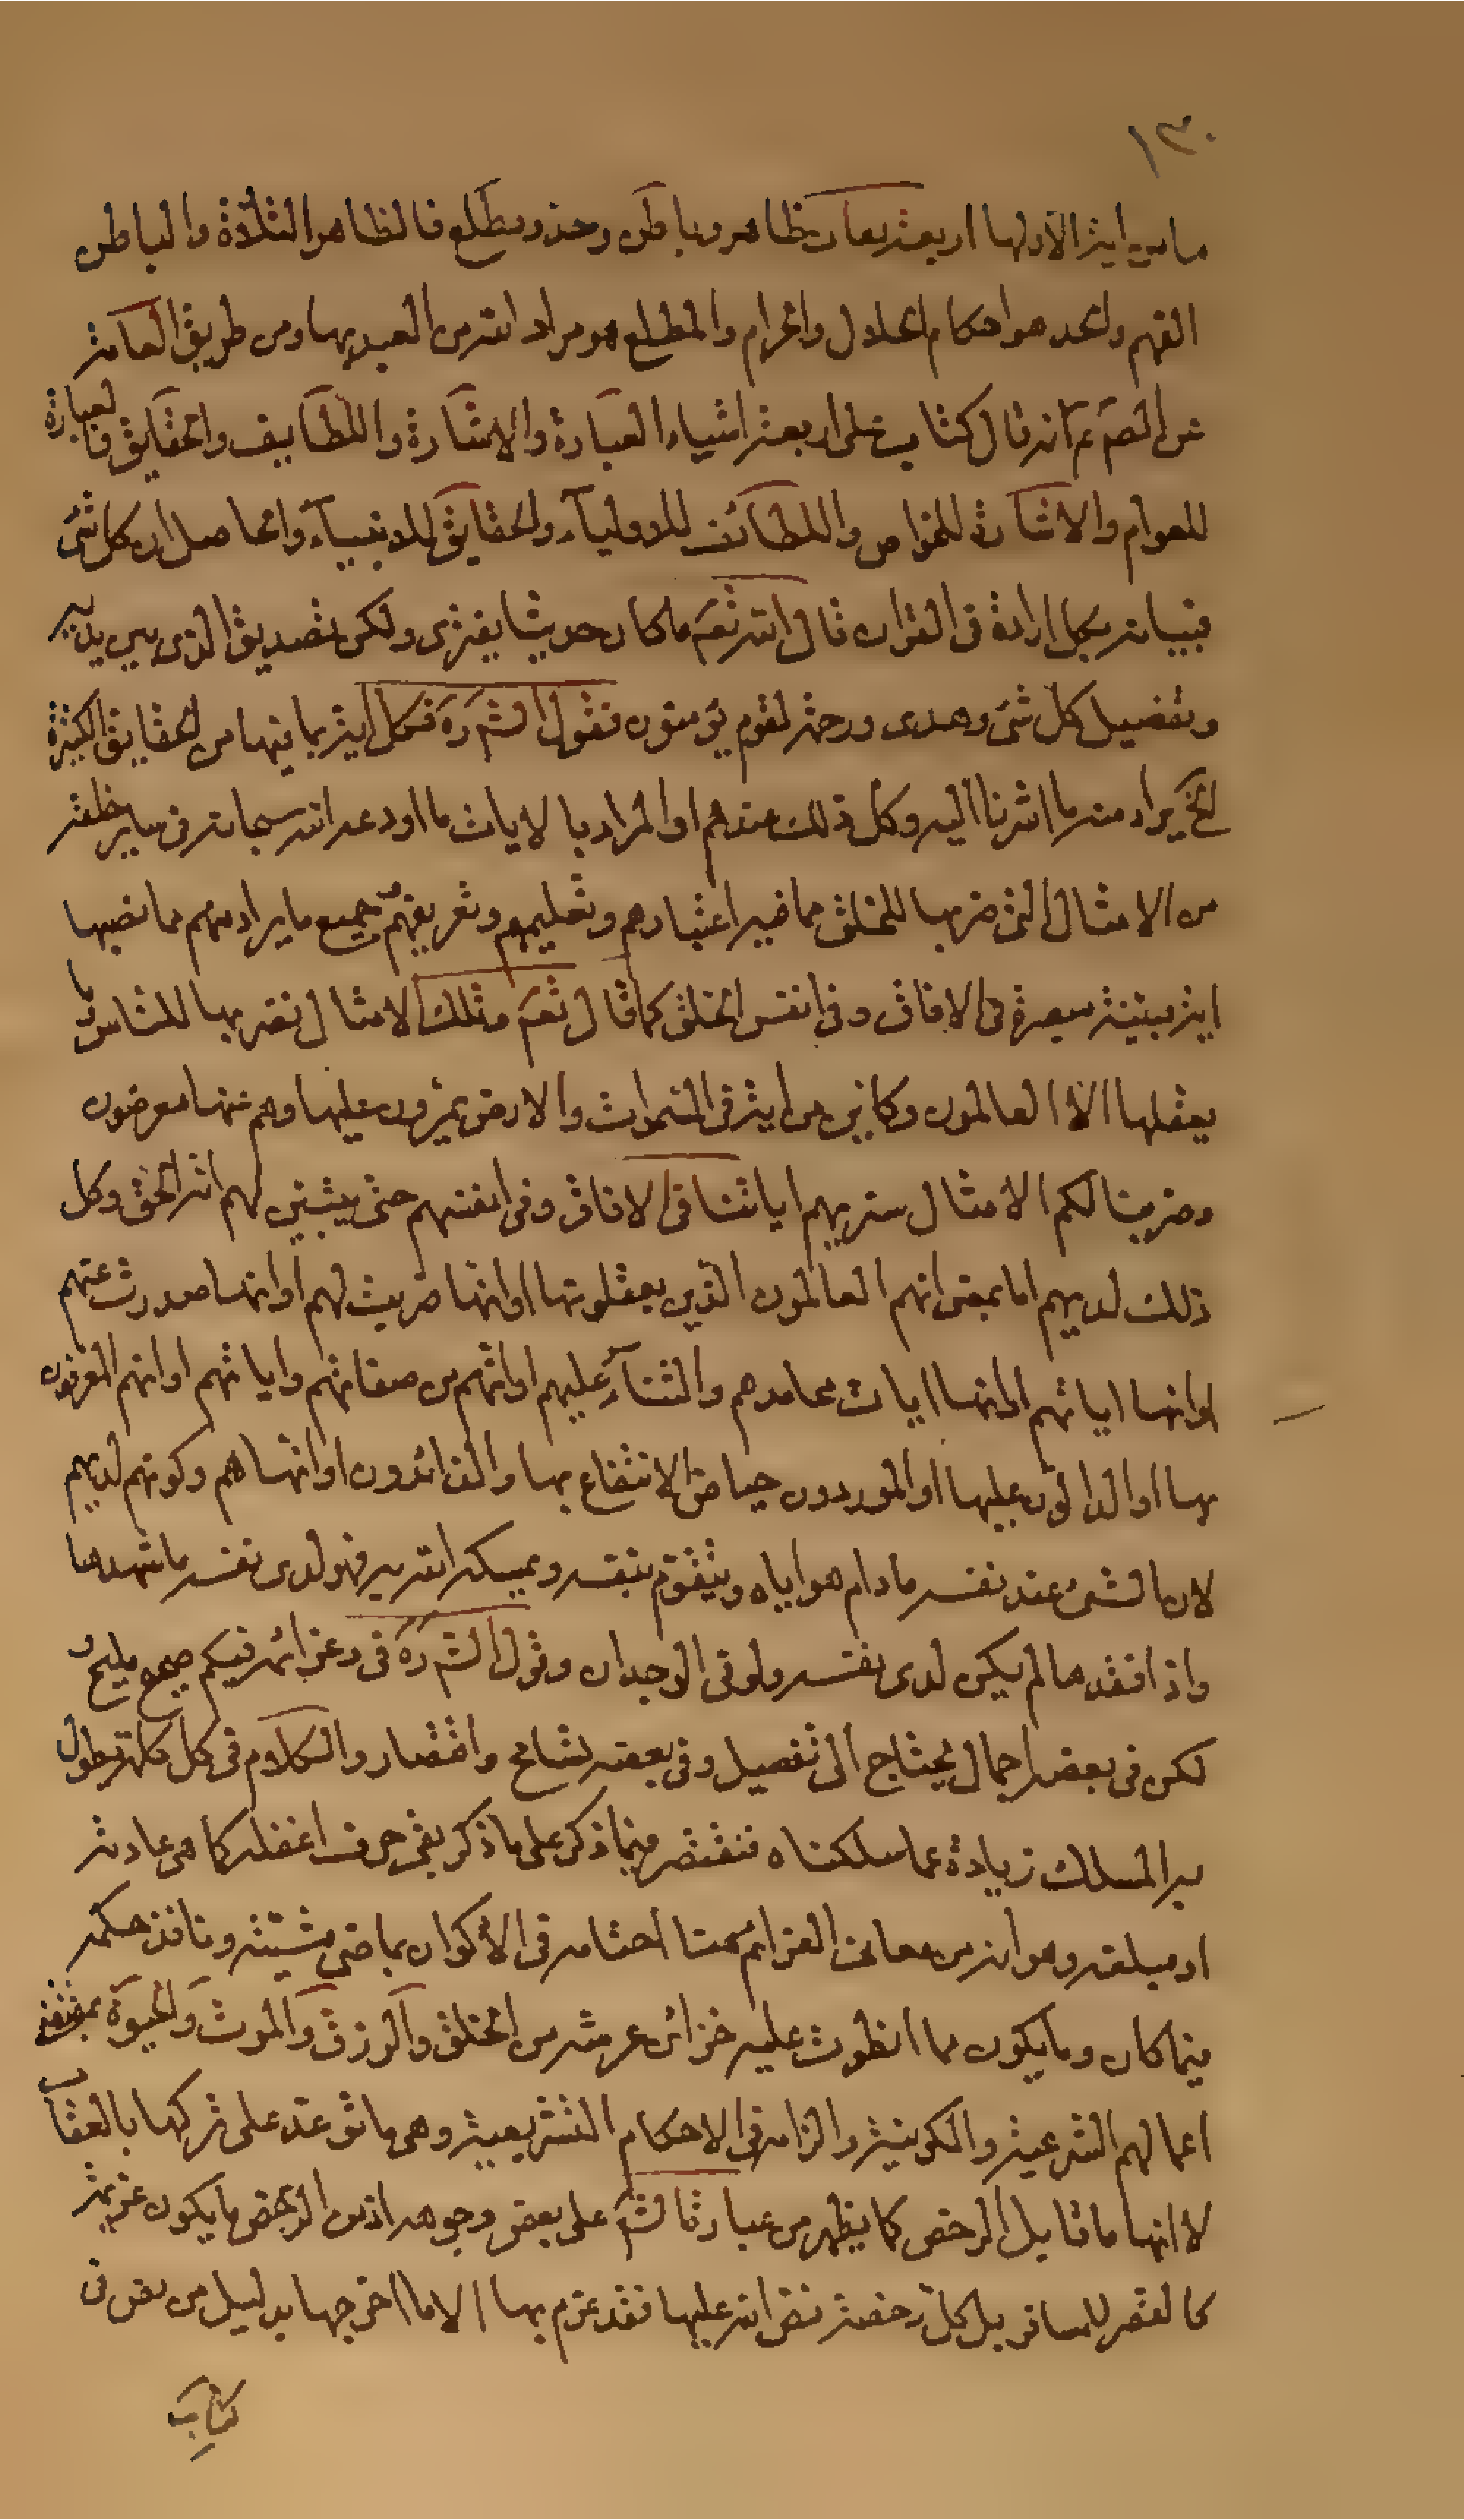 ١٣٠
ما من اية الا ولها اربعة معان ظاهر وباطن وحد ومطلع فالظاهر التلاوة والباطن
الفهم والحد هو احكام الحلال والحرام والمطلع هو مراد الله من العبد بها ومن طريق العامة
عن الصم عم انه قال كتاب على اربعة اشياء العبارة والاشارة واللطايف والحقايق فالعبارة
للعوام والاشارة للخواص واللطائف للاولياء والحقايق للانبياء والحاصل ان كل شئ
فبيانه بكل ارادة فى القران قال الله تعم ما كان حديثا يفترى ولكن تصديق الذى بين يديه
وتفصيل كل شئ وهدى ورحمة لقوم يؤمنون فقول الشم ره فكل اية بما فيها من الحقايق الكثيرة
الخ يراد منه ما اشرنا اليه وكل ذلك عندهم او المراد بالايات ما اودعه الله سبحانه فى ساير خلقه
من الامثال التى ضربها للخلق مما فيه اعتبارهم وتعليمهم وتعريفهم جميع ما يراد منهم مما نصبها
اية مبينة مبصرة فى الافاق وفى انفس الخلق كما قال تعم وتلك الامثال نضربها للناس وما
يعقلها الا العالمون وكاين من اية فى السموات والارض يمرون عليها وهم عنها معرضون
وضربنا لكم الامثال سنريهم اياتنا فى الافاق وفى انفسهم حتى يتبين لهم انه الحق وكل
ذلك لديهم اما بمعنى انهم العالمون الذين يعقلونها او انها ضربت لهم او انها صدرت عنهم
او انها اياتهم او انها ايات محامدهم والثناء عليهم او انهم من صفاتهم واياتهم او انهم المعرفون
بها او الدالون عليها او الموردون حياض الانتفاع بها والذائدون او انها هم وكونهم لديهم
لان الشئ عند نفسه ما دام هو اياه ويتقوم بنفسه ويمسكه الله به فهو لدى نفسه ما شهدها
واذا فقدها لم يكن لدى نفسه ولو فى الوجدان وقول الشم ره فى وعزائمه فيكم صحيح مليح
لكن فى بعضه اجمال يحتاج الى تفصيل وفى بعضه تسامح واقتصار والكلام فى كل كلمة يطول
به المسلك زيادة عما سلكناه فنقتصر فيما ذكر على ما ذكر بقى حرف اغفله كما هى عادته
او مبلغه وهو ان من معانى العزائم هنا احتامه فى الاكوان بماضى مشيته ونافذ حكمه
فيما كان وما يكون مما انطوت عليه خزائن عرشه من الخلق والرزق والموت والحيوة بمقتضى
اعمالهم الشرعية والكونية والزامه فى الاحكام التشريعية وهى ما توعد على تركها بالعقاب
لا انها ما قابل الرخص كما يظهر من عبارة الشم على بعض وجوهه اذ من الرخص ما يكون عزيمة
كالقصر للمسافر بل كل رخصة نص الله عليها فقد عزم بها الا ما اخرجها بدليل من نص فى
كتاب